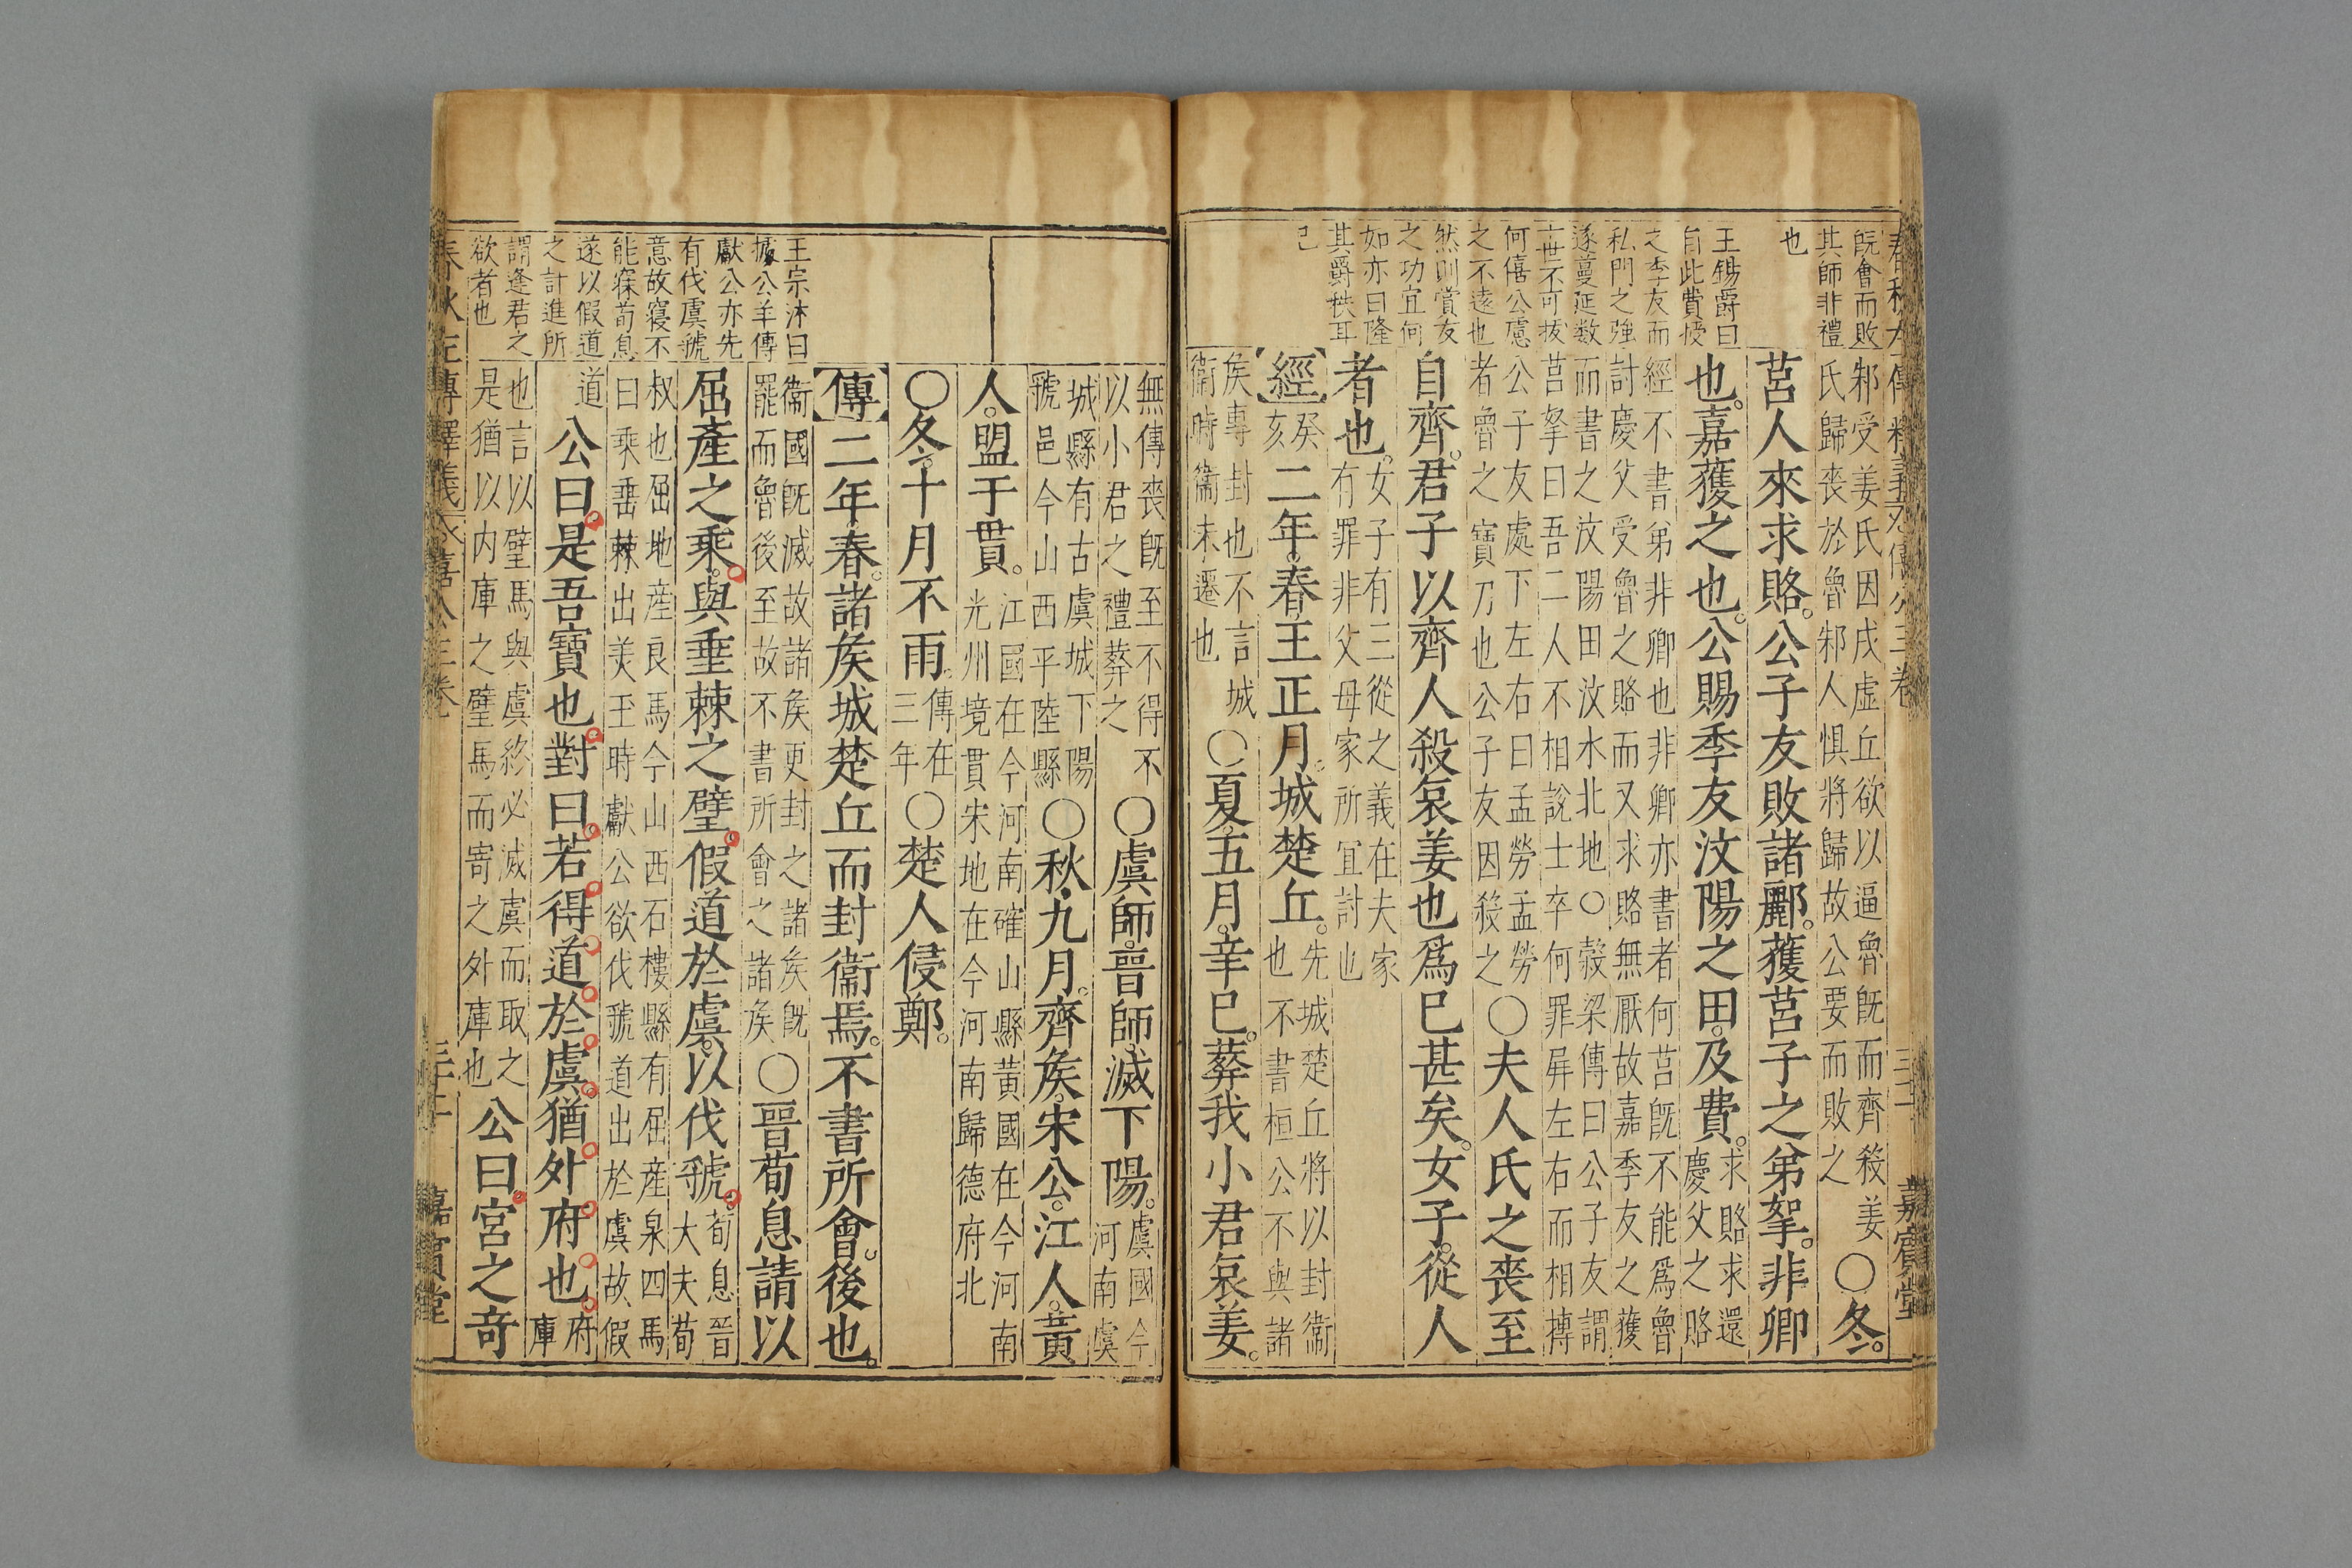 既會而敗
其師非禮
也
王錫爵曰
自此費授
之季友而
私門之強
遂蔓延数
世不可拔
何僖公慮
之不遠也
然則賞友
之功宜何
如亦曰隆
其爵秩耳
已
邾受姜氏因戌虛丘欲以逼魯既而齊殺姜
氏歸喪於魯邾人惧將歸故公要而敗之
○冬。
莒人來求賂。公子友敗諸酈。獲莒子之弟挐。非卿
也。嘉獲之也。公賜季友汶陽之田。及費。
求賂求還
慶父之賂
經不書弟非卿也非卿亦書者何莒既不能爲魯
討慶父受魯之賂而又求賂無厭故嘉季友之獲
而書之汶陽田汶水北地○穀梁傳曰公子友謂
莒挐曰吾二人不相說士卒何罪屏左右而相搏
公子友處下左右曰孟勞孟勞
者魯之寶刀也公子友因殺之
○夫人氏之喪至
自齊。君子以齊人殺哀姜也爲已甚矣。女子。從人
者也。
女子有三從之義在夫家
有罪非父母家所冝討也
【經】
癸
亥
二年。春。王正月。城楚丘。
先城楚丘將以封衞
也不書桓公不與諸
侯專封也不言城
衞時衞未遷也
○夏。五月。辛巳。葬我小君哀姜。
春秋左傳釋義
僖公三卷
嘉賓堂
王宗沐曰
據公羊傳
獻公亦先
有伐虞虢
意故寢不
能寐荀息
遂以假道
之計進所
謂逢君之
欲者也
無傳喪既至不得不
以小君之禮葬之
○虞師。晉師。滅下陽。
虞國今
河南虞
城縣有古虞城下陽
虢邑今山西平陸縣
○秋。九月。齊矦。宋公。江人。黃
人。盟于貫。
江國在今河南確山縣黃國在今河南
光州境貫宋地在今河南歸德府北
○冬。十月不雨。
傳在
三年
○楚人侵鄭。
【傳】二年春。諸矦城楚丘而封衞焉。不書所會。後也。
衞國既滅故諸矦更封之諸矦既
罷而魯後至故不書所會之諸矦
○晉荀息請以
屈產之乘。與垂棘之璧。假道於虞。以伐虢。
荀息晉
大夫荀
叔也屈地産良馬今山西石樓縣有屈産泉四馬
曰乘垂棘出美玉時獻公欲伐虢道出於虞故假
道
公曰。是吾寶也。對曰。若得道於虞。猶外府也。
府
庫
也言以璧馬與虞終必滅虞而取之
是猶以内庫之璧馬而寄之外庫也
公曰。宮之奇
嘉賓堂